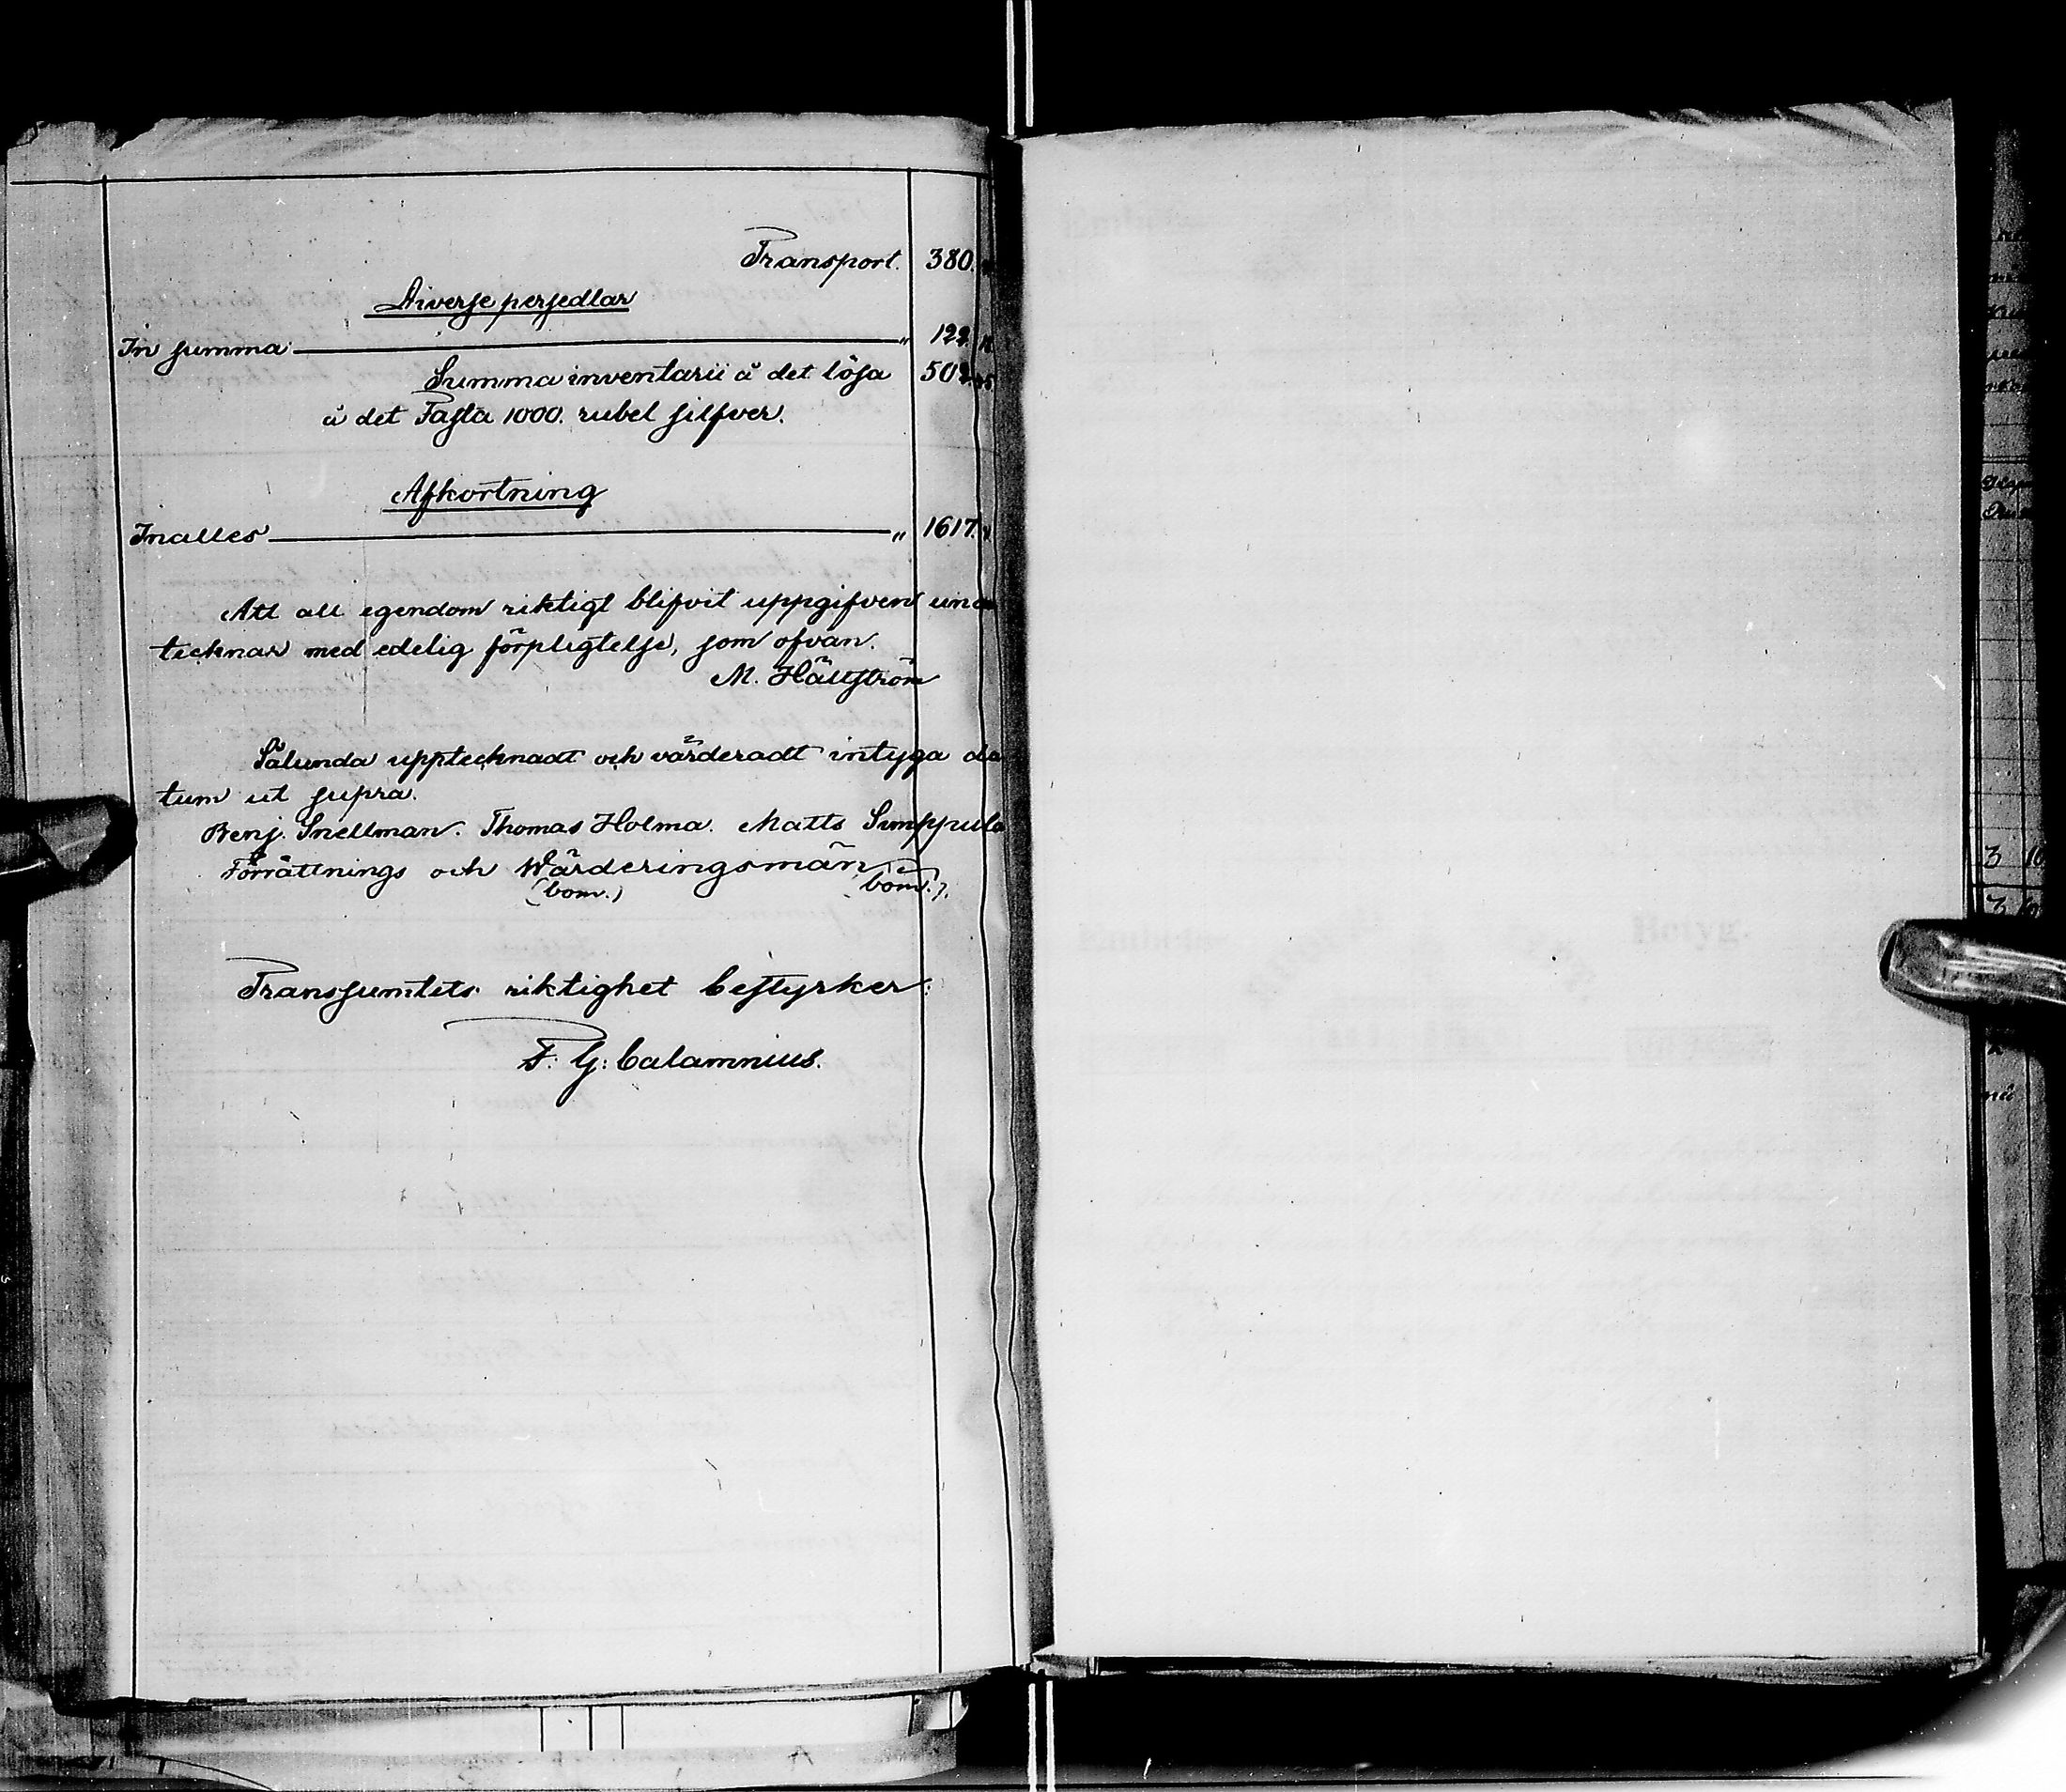 Transport. 380.
Diverse persedlar
In summa " 122.
Summa inventarii å det lösa 502.
å det Fasta 1000. rubel silfver.
Afkortning
Inalles " 1617.
Att all egendom riktigt blifvit uppgifven un
tecknas med edelig förpligtelse, som ofvan.
M. Hällström
Sålunda upptecknadt och värderadt intyga da
tum ut supra.
Benj. Snellman. Thomas Holma. Matts Sumppula
Förrättnings och Wärderingsmän
(bom.) bom.).
Transsumtets riktighet bestyrker:
F. G: Calamnius.